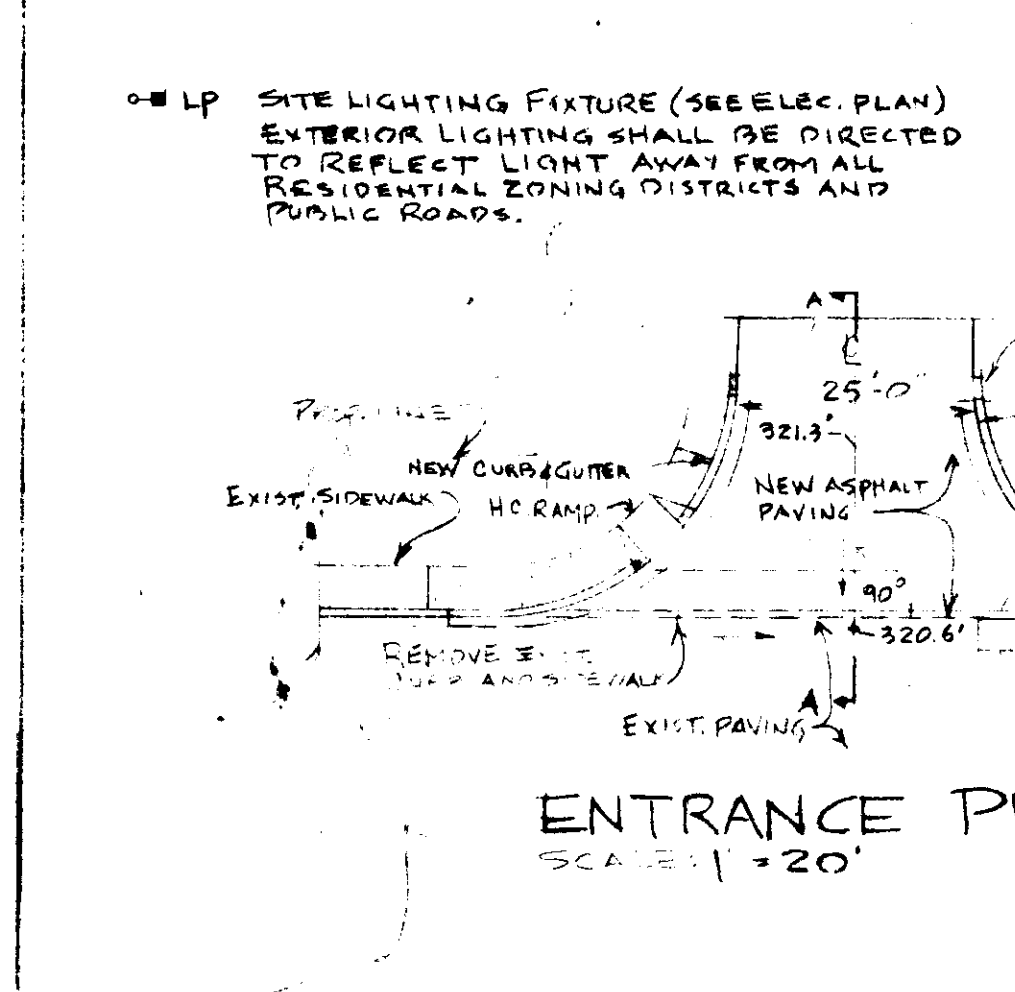 LP SITE LIGHTING FIXTURE (SEE ELEC. PLAN)
EXTERIOR LIGHTING SHALL BE DIRECTED
TO REFLECT LIGHT AWAY FROM ALL
RESIDENTIAL ZONING DISTRICTS AND
PUBLIC ROADS.
A
25'-0"
PROP. LINE
321.3'
NEW CURB & GUTTER
EXIST. SIDEWALK
H.C. RAMP
NEW ASPHALT
PAVING
90°
320.6'
REMOVE EXIST.
CURB AND SIDEWALK
A
EXIST. PAVING
ENTRANCE
SCALE: 1" = 20'